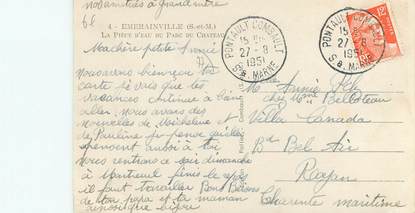 nos amitiés à grand mère
4 - EMERAINVILLE (S.-et-M.)
LA PIÈCE D'EAU DU PARC DU CHATEAU
Ma chère petite
nous avons bien reçu ta
carte je vois que tes
vacances continue à bien
aller, nous avons des
nouvelles de Micheline et
de Pauline je pense qu'elles
pensent aussi à toi
nous rentrons ce soir dimanche
à Montreuil finis le repos
il faut travailler Bons Baisers
de ton papa et ta maman
PONTAULT-COMBAULT
15
27-8
1951
S & MARNE
PONTAULT-COMBAULT
15
27-8
1951
S & MARNE
Melle Annie
chez Mme
Villa Canada
Bd Bel Air
Royan
Charente maritime